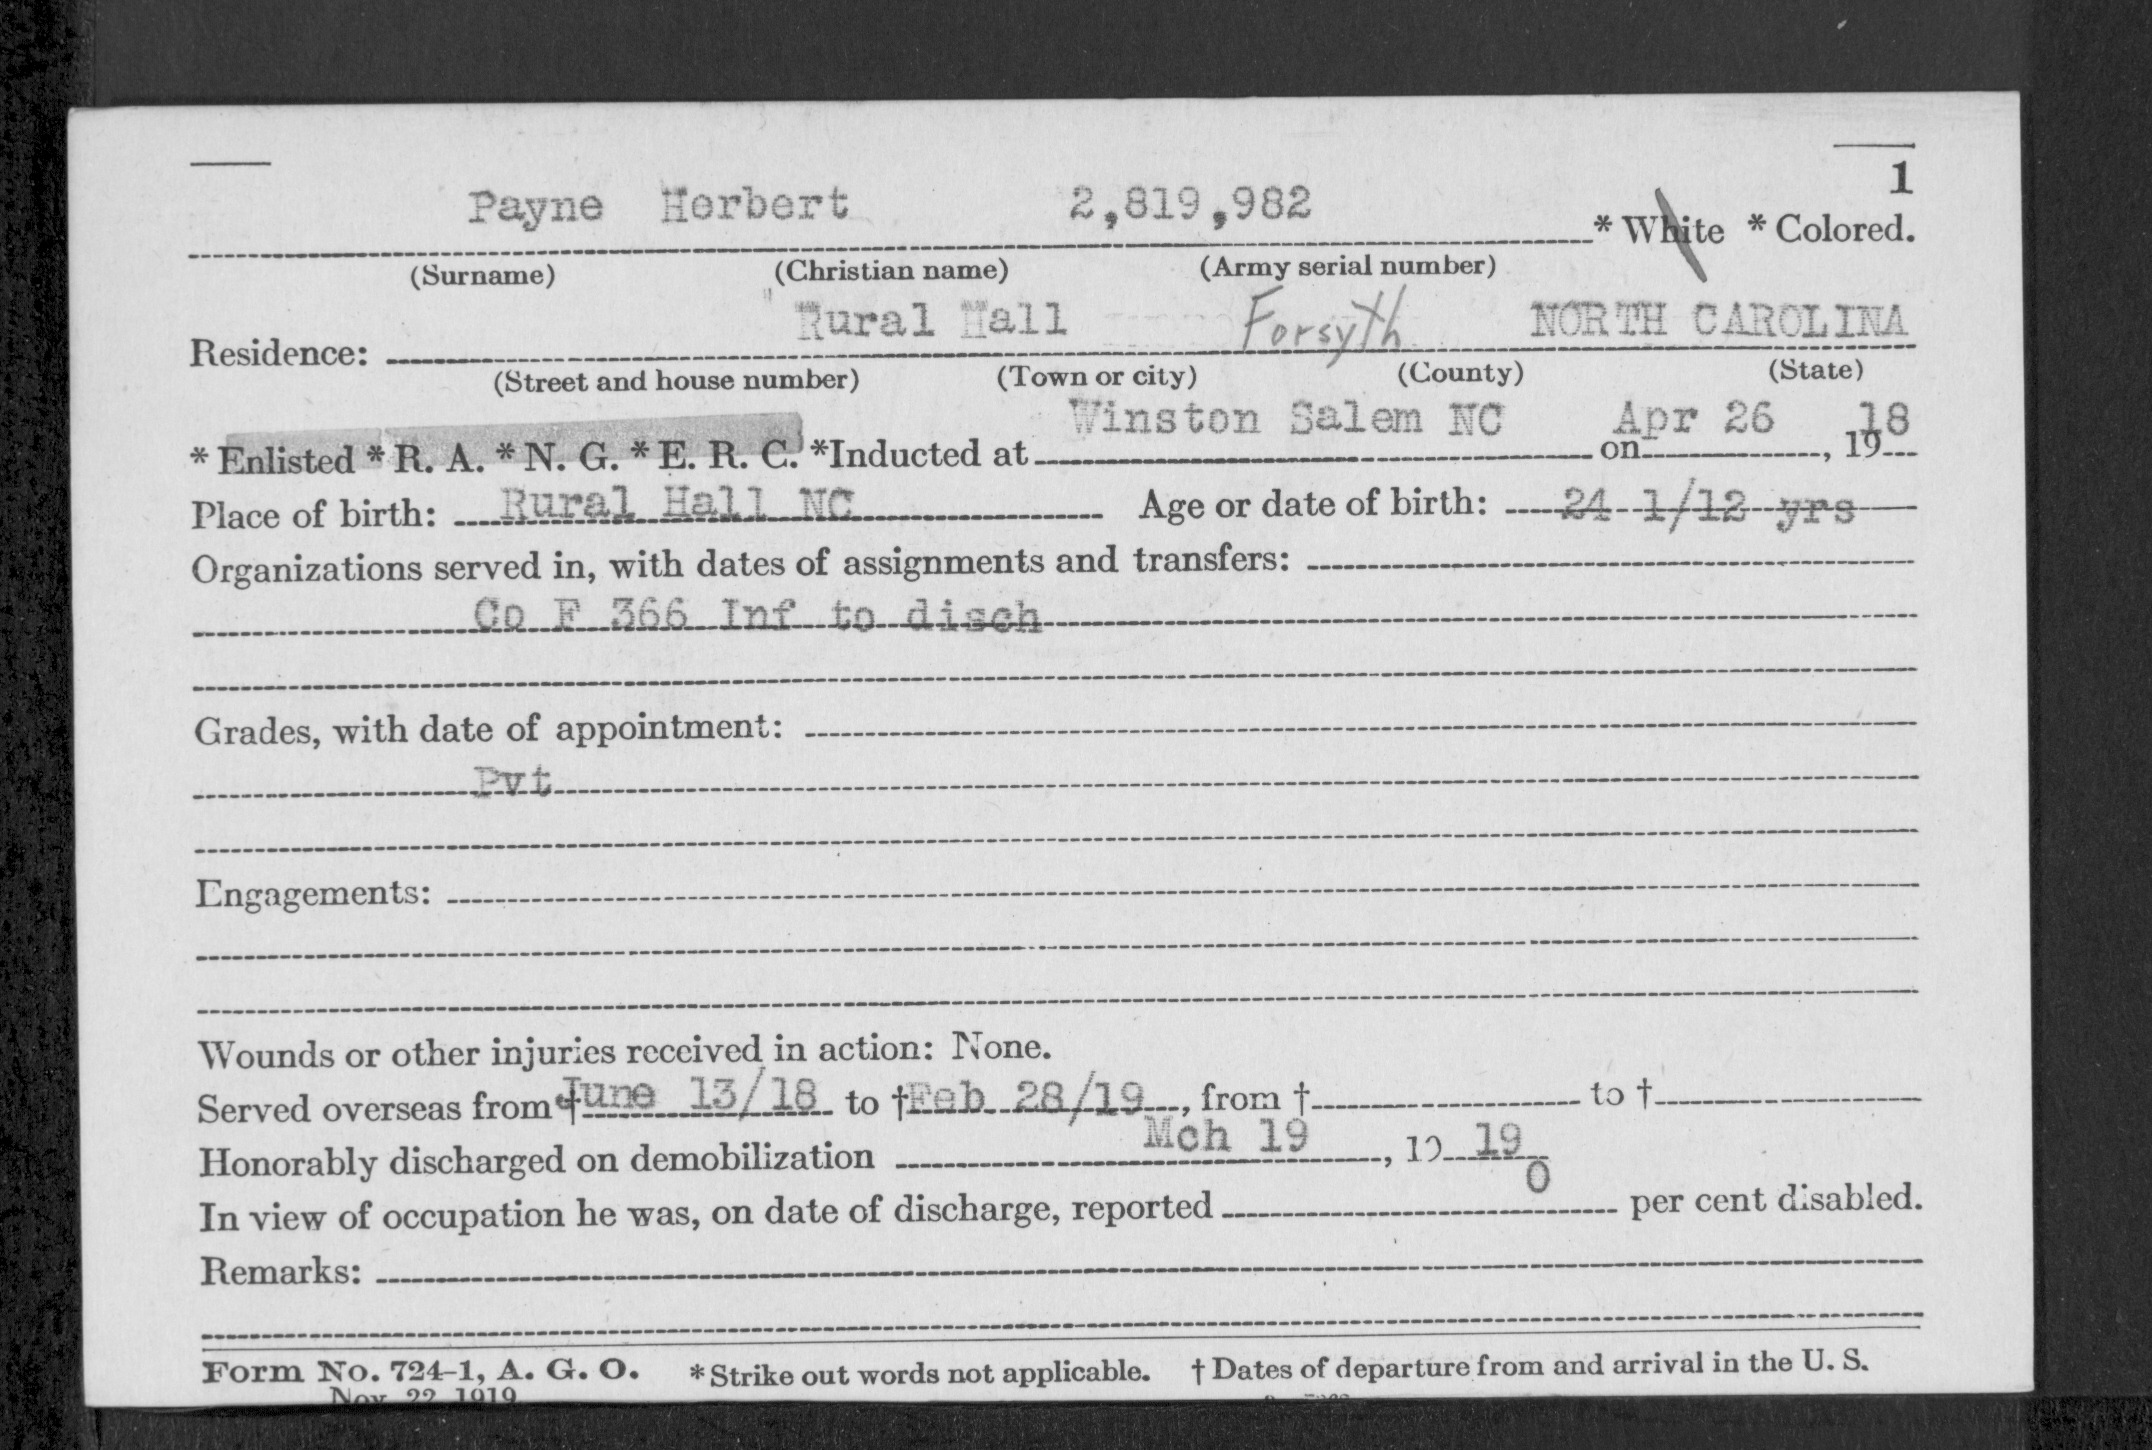 1
Payne Herbert 2,819,982 * White * Colored.
(Surname) (Christian name) (Army serial number)
Residence: Rural Hall Forsyth NORTH CAROLINA
(Street and house number) (Town or city) (County) (State)
* Enlisted * R. A. * N. G. * E. R. C. *Inducted at Winston Salem NC on Apr 26, 19 18
Place of birth: Rural Hall NC Age or date of birth: 24 1/12 yrs
Organizations served in, with dates of assignments and transfers:
Co F 366 Inf to disch
Grades, with date of appointment:
Pvt
Engagements:
Wounds or other injuries received in action: None.
Served overseas from † June 13/18 to † Feb 28/19, from † to †
Honorably discharged on demobilization Mch 19, 19 19
In view of occupation he was, on date of discharge, reported 0 per cent disabled.
Remarks:
Form No. 724-1, A. G. O. * Strike out words not applicable. † Dates of departure from and arrival in the U. S.
Nov. 22, 1919